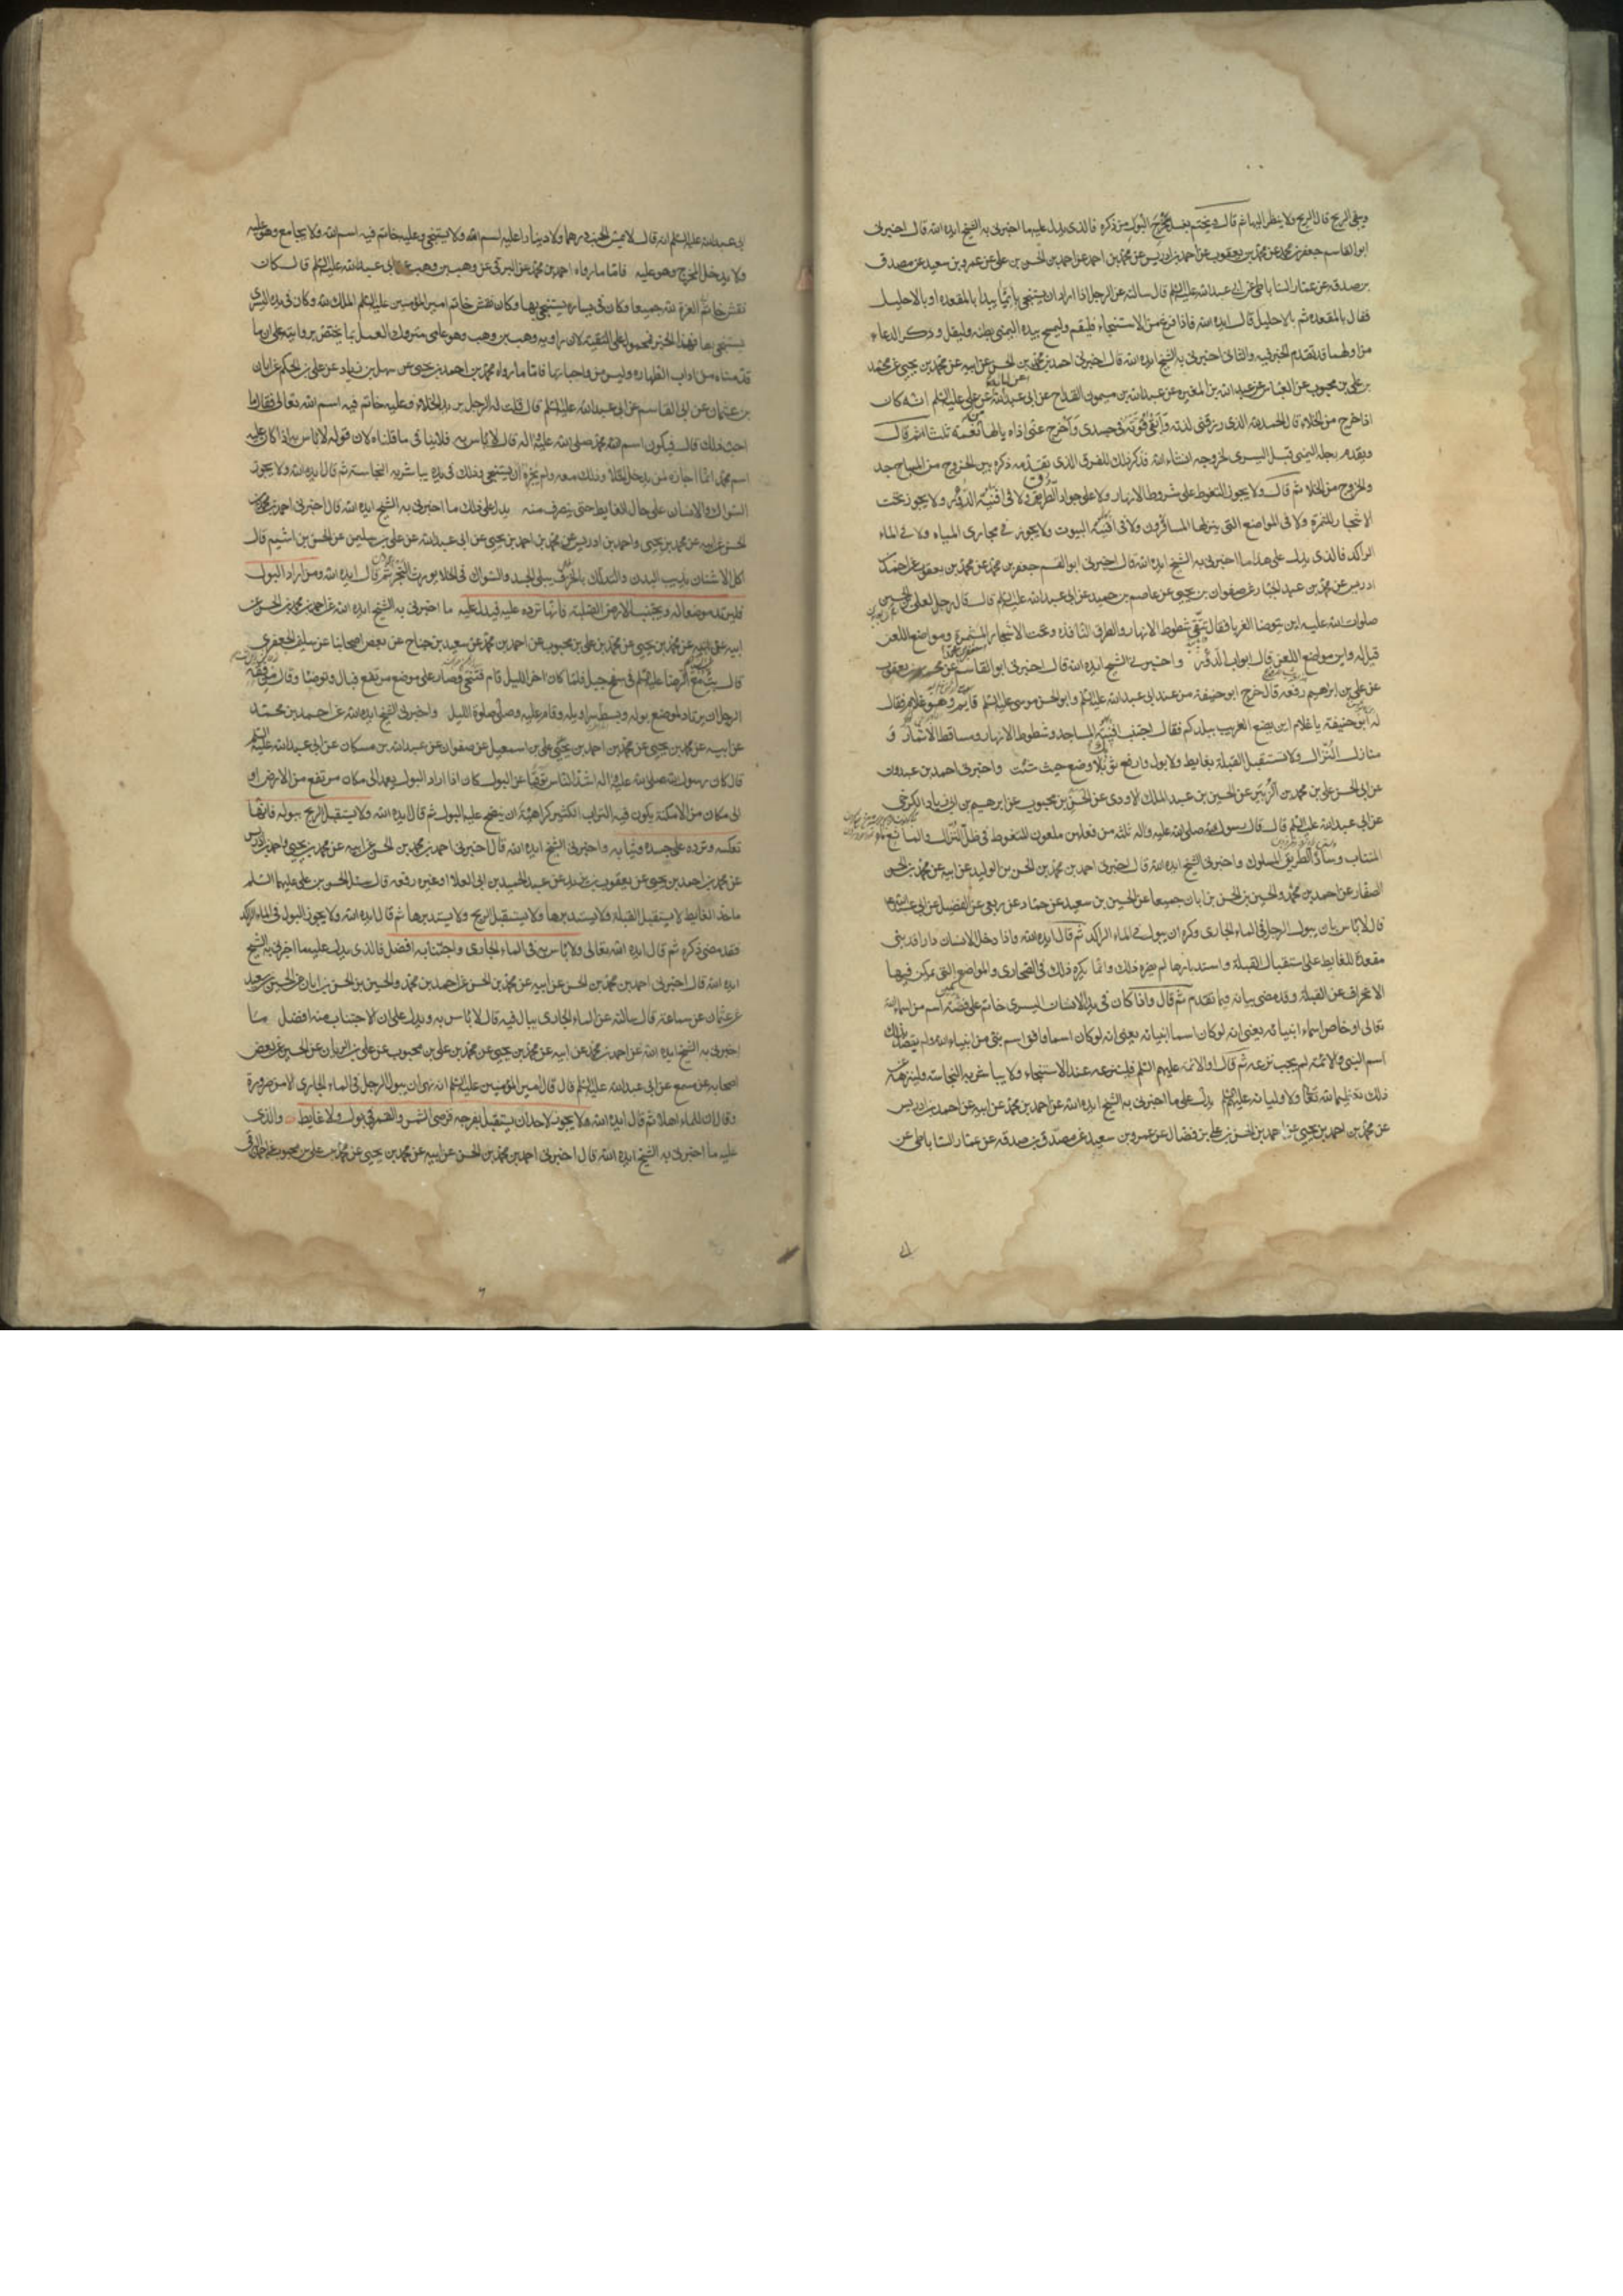 وينقى الريح قال الريح ولا ينظر اليها ثم قال ويختم بغسل مخرج البول من ذكره فالذي يدل عليه ما اخبرني به الشيخ ايده الله قال اخبرني
ابو القاسم جعفر بن محمد عن محمد بن يعقوب عن احمد بن ادريس عن محمد بن احمد عن احمد بن الحسن بن علي عن عمرو بن سعيد عن مصدق
بن صدقه عن عمار الساباطي عن ابي عبد الله عليه السلم قال سالته عن الرجل اذا اراد ان يستنجى بايما يبدا بالمقعده او بالاحليل
فقال بالمقعده ثم بالاحليل قال ايده الله فاذا فرغ من الاستنجاء فليقم وليمسح بيده اليمنى بطنه وليقل وذكر الدعاء
احمد بن محمد بن الحسن عن ابيه عن محمد بن يحيى عن محمد
بن علي بن محبوب عن عبد الله بن المغيره عن عبد الله بن ميمون القداح عن ابي عبد الله عن علي عليه السلم انه كان
اذا خرج من الخلاء قال الحمد لله الذي رزقني لذته وابقى قوته في جسدي واخرج عني اذاه يالها نعمة ثلثا ثم قال
ويقدم رجله اليمنى قبل اليسرى لخروجه انشاء الله فذكر ذلك للفرق الذي تقدم ذكره بين الخروج من المساجد
والخروج من الخلاء ثم قال ولا يجوز التغوط على شطوط الانهار ولا على جواد الطريق ولا في افنية الدور ولا يجوز تحت
الاشجار المثمرة ولا في المواضع التي ينزلها المسافرون ولا في افنية البيوت ولا يجوز في مجاري المياه ولا في الماء
الراكد فالذي يدل على هذا ما اخبرني به الشيخ ايده الله قال اخبرني ابو القسم جعفر بن محمد عن محمد بن يعقوب عن احمد بن
ادريس عن محمد بن عبد الجبار عن صفوان بن يحيى عن عاصم بن حميد عن ابي عبد الله عليه السلم قال قال رجل لعلي بن الحسين
صلوات الله عليه اين يتوضا الغربا فقال يتقى شطوط الانهار والطرق النافذه وتحت الاشجار المثمرة ومواضع اللعن
قيل له واين مواضع اللعن قال ابواب الدور واخبرني الشيخ ايده الله قال اخبرني ابو القاسم عن محمد بن يعقوب
عن علي بن ابراهيم رفعه قال خرج ابو حنيفة من عند ابي عبد الله عليه السلم وابو الحسن موسى عليه السلم قايم وهو غلام فقال
له ابو حنيفة يا غلام اين يضع الغريب ببلدكم فقال اجتنب افنية المساجد وشطوط الانهار ومساقط الاثمار و
منازل النزال ولا تستقبل القبلة بغايط ولا بول وارفع ثوبك وضع حيث شئت واخبرني احمد بن عبدون
عن ابي الحسن علي بن محمد بن الزبير عن الحسين بن عبد الملك الاودي عن الحسن بن محبوب عن ابرهيم بن ابي زياد الكرخي
عن ابي عبد الله عليه السلم قال قال رسول الله صلى الله عليه واله ثلثه من فعلهن ملعون المتغوط في ظل النزال والمانع الماء
المنتاب وساد الطريق المسلوك واخبرني الشيخ ايده الله قال اخبرني احمد بن محمد بن الحسن بن الوليد عن ابيه عن محمد بن الحسن
الصفار عن احمد بن محمد والحسين بن الحسن بن ابان جميعا عن الحسين بن سعيد عن حماد عن ربعي عن الفضيل عن ابي عبد الله
قال لا باس بان يبول الرجل في الماء الجارى وكره ان يبول في الماء الراكد ثم قال ايده الله واذا دخل الانسان دارا قد بني
مقعدها للغايط على استقبال القبلة واستدبارها لم يضره ذلك وانما يكره ذلك في الصحاري والمواضع التي يمكن فيها
الانحراف عن القبلة وقد مضى بيانه فيما تقدم ثم قال واذا كان في يد الانسان اليسرى خاتم على فصه اسم من اسماء الله
تعالى او خاص اسماء انبيائه
اسم النبي والائمة لم يجب نزعه ثم قال او الائمة عليهم السلم فلينزعه عند الاستنجاء ولا يباشر به النجاسة ولينزهه عن
ذلك تعظيما لله تعالى ولاوليائه عليهم السلم يدل على ما اخبرني به الشيخ ايده الله عن احمد بن محمد عن ابيه عن احمد بن ادريس
عن محمد بن احمد بن يحيى عن احمد بن الحسن بن علي بن فضال عن عمرو بن سعيد عن مصدق بن صدقه عن عمار الساباطي عن
ابي عبد الله عليه السلم انه قال لا يمس الجنب درهما ولا دينارا عليه اسم الله ولا يستنجى وعليه خاتم فيه اسم الله ولا يجامع وهو عليه
ولا يدخل المخرج وهو عليه فاما ما رواه احمد بن محمد عن البرقي عن وهب بن وهب عن ابي عبد الله عليه السلم قال كان
نقش خاتم ابي العزة لله جميعا وكان في يساره يستنجى بها وكان نقش خاتم امير المؤمنين عليه السلم الملك لله وكان في يده اليسرى
يستنجى بها فهذا الخبر محمول على التقية لان راويه وهب بن وهب وهو عامي متروك العمل بما يختص بروايته على ان ما
قدمناه من اداب الطهاره وليس من واجباتها فاما ما رواه محمد بن احمد بن يحيى عن سهل بن زياد عن علي بن الحكم عن ابان
بن عثمان عن ابي القاسم عن ابي عبد الله عليه السلم قال قلت له الرجل يريد الخلاء وعليه خاتم فيه اسم الله تعالى فقال ما
احب ذلك قال فيكون اسم الله محمد صلى الله عليه واله قال لا باس به فلا ينافي ما قلناه لان قوله لا باس به اذا كان عليه
اسم محمد انما اجازه لمن يدخل الخلا وذلك معه ولم يجزه ان يستنجى وذلك في يده يباشر به النجاسة ثم قال ايده الله ولا يجوز
السواك والانسان على حال الغايط حتى ينصرف منه يدل على ذلك ما اخبرني به الشيخ ايده الله قال اخبرني احمد بن محمد بن
الحسن عن ابيه عن محمد بن يحيى واحمد بن ادريس عن محمد بن احمد بن يحيى عن ابي عبد الله عن علي بن سليمن عن الحسن بن اشيم قال
اكل الاشنان يذيب البدن والتدلك بالخزف يبلي الجسد والسواك في الخلا يورث البخر ثم قال ايده الله ومن اراد البول
فليرتد موضعا له ويجتنب الارض الصلبة فانها ترده عليه فيدل عليه ما اخبرني به الشيخ ايده الله عن احمد بن محمد بن الحسن عن
ابيه عن محمد بن يحيى عن محمد بن علي بن محبوب عن احمد بن محمد عن سعيد بن جناح عن بعض اصحابنا عن سليمن الجعفري
قال بت مع الرضا عليه السلم في سفح جبل فلما كان اخر الليل قام فتنحى وصار على موضع مرتفع فبال وتوضا وقال من فقه
الرجل ان يرتاد لموضع بوله وبسط سراويله وقام عليه وصلى صلوة الليل واخبرني الشيخ ايده الله عن احمد بن محمد
عن ابيه عن محمد بن يحيى عن محمد بن احمد بن يحيى عن علي بن اسمعيل عن صفوان عن عبد الله بن مسكان عن ابي عبد الله عليه السلم
قال كان رسول الله صلى الله عليه واله اشد الناس توقيا عن البول كان اذا اراد البول يعمد الى مكان مرتفع من الارض او
الى مكان من الامكنة يكون فيه التراب الكثير كراهية ان ينضح عليه البول ثم قال ايده الله ولا يستقبل الريح ببوله فانها
تعكسه وترده على جسده وثيابه واخبرني الشيخ ايده الله قال اخبرني احمد بن محمد بن الحسن عن ابيه عن محمد بن يحيى واحمد بن ادريس
عن محمد بن احمد بن يحيى عن يعقوب بن يزيد عن عبد الحميد بن ابي العلا او غيره رفعه قال سئل الحسن بن علي عليهما السلم
ما حد الغايط لا يستقبل القبلة ولا يستدبرها ولا يستقبل الريح ولا يستدبرها ثم قال ايده الله ولا يجوز البول في الماء الراكد
فقد مضى ذكره ثم قال ايده الله تعالى ولا باس به في الماء الجارى واجتنابه افضل فالذي يدل عليه ما اخبرني به الشيخ
ايده الله قال اخبرني احمد بن محمد بن الحسن عن ابيه عن محمد بن الحسن عن احمد بن محمد والحسين بن الحسن بن ابان عن الحسين بن سعيد
عن عثمان عن سماعة قال سالته عن الماء الجارى يبال فيه قال لا باس به ويدل على ان الاجتناب منه افضل ما
اخبرني به الشيخ ايده الله عن احمد بن محمد عن ابيه عن محمد بن يحيى عن محمد بن علي بن محبوب عن علي بن الريان عن الحسين عن بعض
اصحابه عن مسمع عن ابي عبد الله عليه السلم قال قال امير المؤمنين عليه السلم انه نهى ان يبول الرجل في الماء الجارى الا من ضرورة
وقال ان للماء اهلا ثم قال ايده الله ولا يجوز لاحد ان يستقبل بفرجه قرصي الشمس والقمر في بول ولا غايط والذي
عليه ما اخبرني به الشيخ ايده الله قال اخبرني احمد بن محمد بن الحسن عن ابيه عن محمد بن يحيى عن محمد بن علي بن محبوب عن